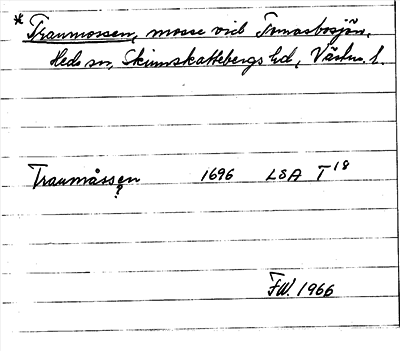 * Traumossen, mosse vid Tomasbosjön,
Heds sn, Skinnskattebergs hd, Västm. l.
Traumåssen 1696 LSA T 18
?
F.W. 1966